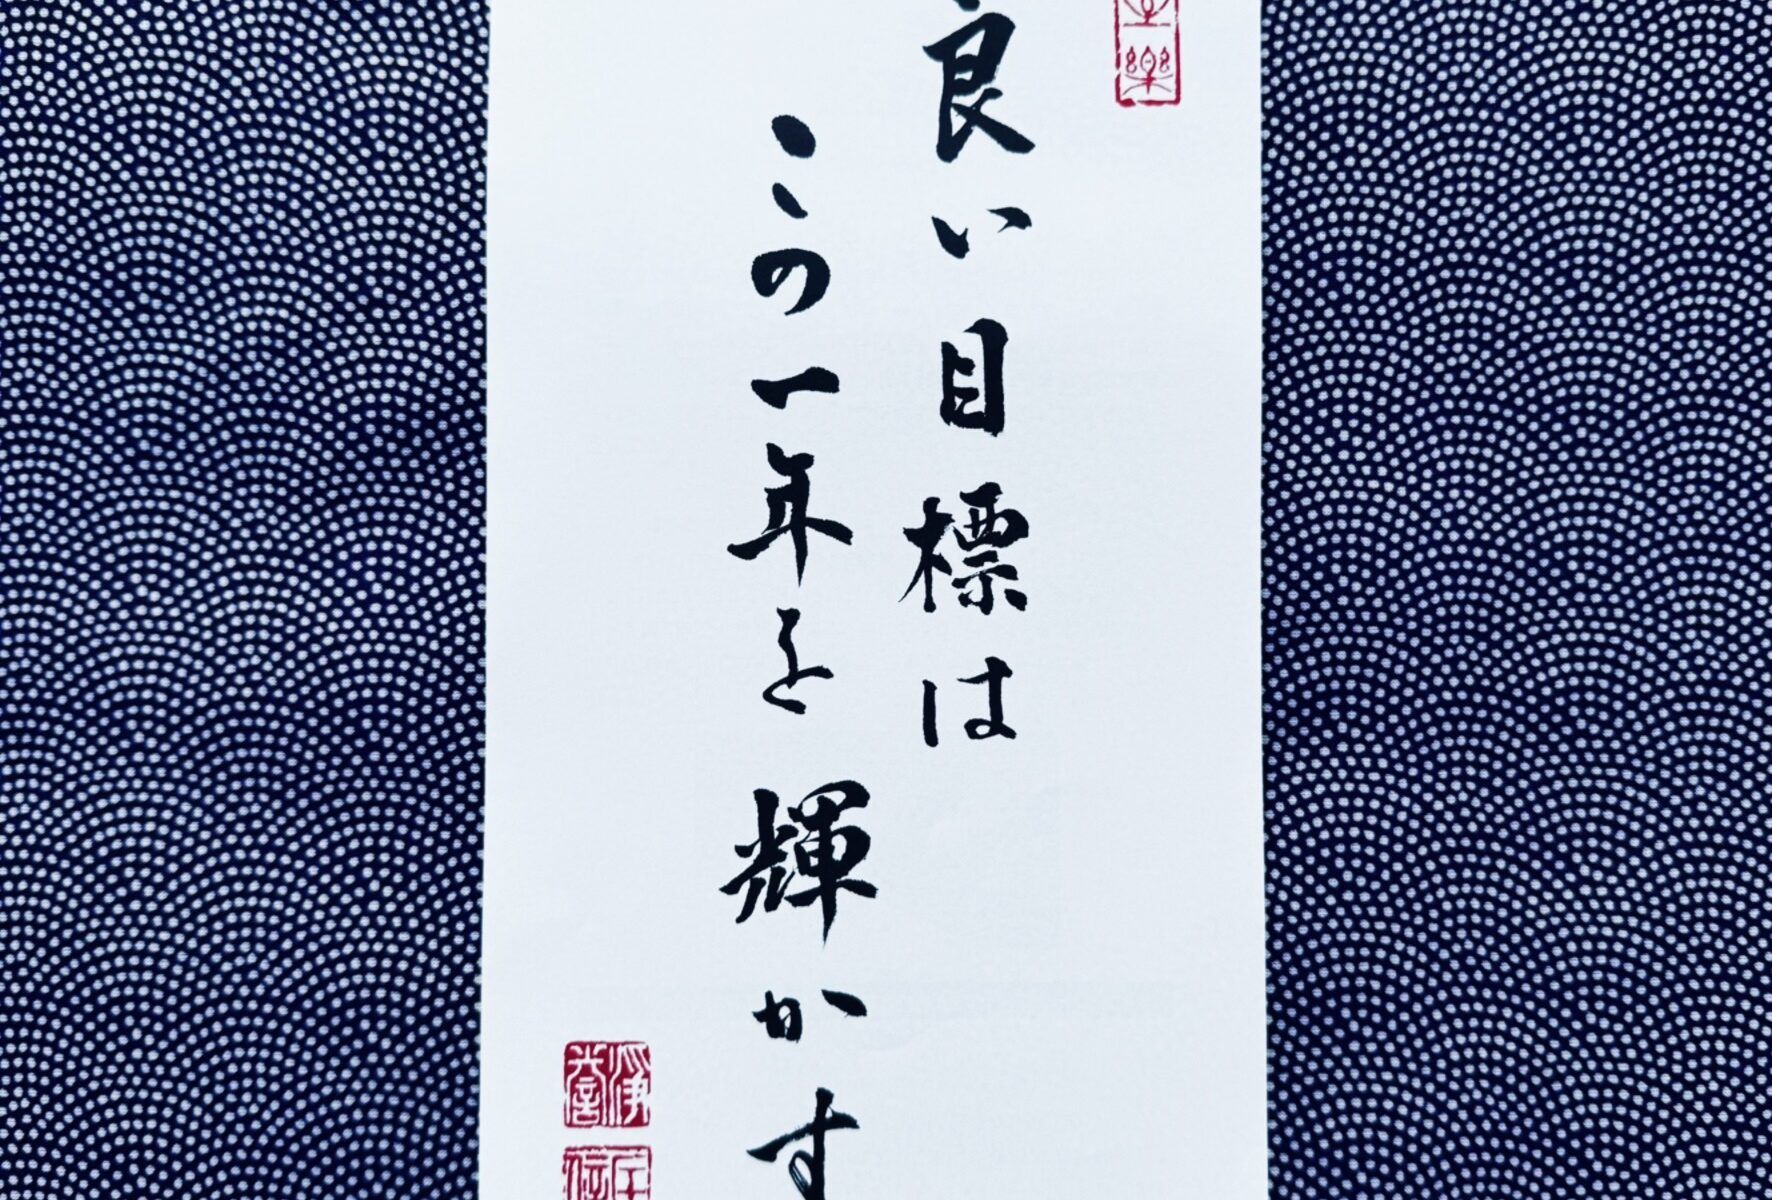 良い目標は
この一年を輝かす
樂